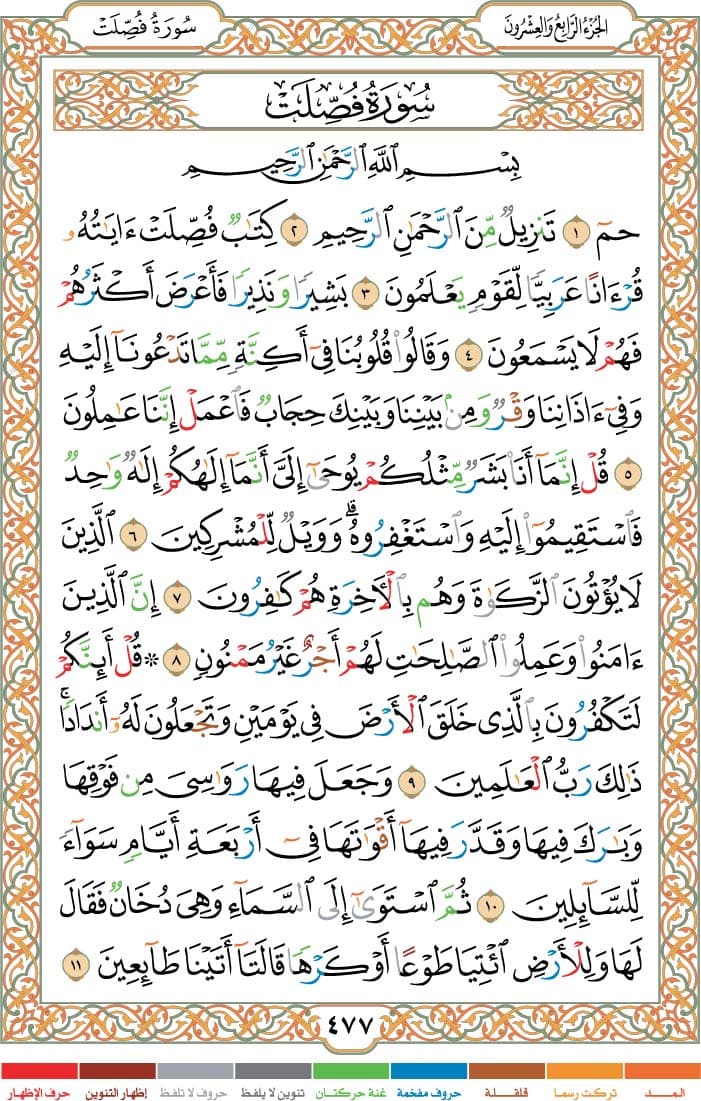 الجُزْءُ الرَّابِعُ وَالعِشْرُونَ
سُورَةُ فُصِّلَتْ
سُورَةُ فُصِّلَتْ
بِسْمِ ٱللَّهِ ٱلرَّحْمَٰنِ ٱلرَّحِيمِ
حمٓ ١ تَنزِيلٌ مِّنَ ٱلرَّحْمَٰنِ ٱلرَّحِيمِ ٢ كِتَٰبٌ فُصِّلَتْ ءَايَٰتُهُۥ
قُرْءَانًا عَرَبِيًّا لِّقَوْمٍ يَعْلَمُونَ ٣ بَشِيرًا وَنَذِيرًا فَأَعْرَضَ أَكْثَرُهُمْ
فَهُمْ لَا يَسْمَعُونَ ٤ وَقَالُوا۟ قُلُوبُنَا فِىٓ أَكِنَّةٍ مِّمَّا تَدْعُونَآ إِلَيْهِ
وَفِىٓ ءَاذَانِنَا وَقْرٌ وَمِنۢ بَيْنِنَا وَبَيْنِكَ حِجَابٌ فَٱعْمَلْ إِنَّنَا عَٰمِلُونَ
٥ قُلْ إِنَّمَآ أَنَا۠ بَشَرٌ مِّثْلُكُمْ يُوحَىٰٓ إِلَىَّ أَنَّمَآ إِلَٰهُكُمْ إِلَٰهٌ وَٰحِدٌ
فَٱسْتَقِيمُوٓا۟ إِلَيْهِ وَٱسْتَغْفِرُوهُ ۗ وَوَيْلٌ لِّلْمُشْرِكِينَ ٦ ٱلَّذِينَ
لَا يُؤْتُونَ ٱلزَّكَوٰةَ وَهُم بِٱلْءَاخِرَةِ هُمْ كَٰفِرُونَ ٧ إِنَّ ٱلَّذِينَ
ءَامَنُوا۟ وَعَمِلُوا۟ ٱلصَّٰلِحَٰتِ لَهُمْ أَجْرٌ غَيْرُ مَمْنُونٍ ٨ ۞ قُلْ أَئِنَّكُمْ
لَتَكْفُرُونَ بِٱلَّذِى خَلَقَ ٱلْأَرْضَ فِى يَوْمَيْنِ وَتَجْعَلُونَ لَهُۥٓ أَندَادًا ۚ
ذَٰلِكَ رَبُّ ٱلْعَٰلَمِينَ ٩ وَجَعَلَ فِيهَا رَوَٰسِىَ مِن فَوْقِهَا
وَبَٰرَكَ فِيهَا وَقَدَّرَ فِيهَآ أَقْوَٰتَهَا فِىٓ أَرْبَعَةِ أَيَّامٍ سَوَآءً
لِّلسَّآئِلِينَ ١٠ ثُمَّ ٱسْتَوَىٰٓ إِلَى ٱلسَّمَآءِ وَهِىَ دُخَانٌ فَقَالَ
لَهَا وَلِلْأَرْضِ ٱئْتِيَا طَوْعًا أَوْ كَرْهًا قَالَتَآ أَتَيْنَا طَآئِعِينَ ١١
٤٧٧
المــد تركت رسما قلقلة حروف مفخمة غنة حركتان تنوين لا يلفظ حروف لا تلفظ إظهار التنوين حرف الإظهار